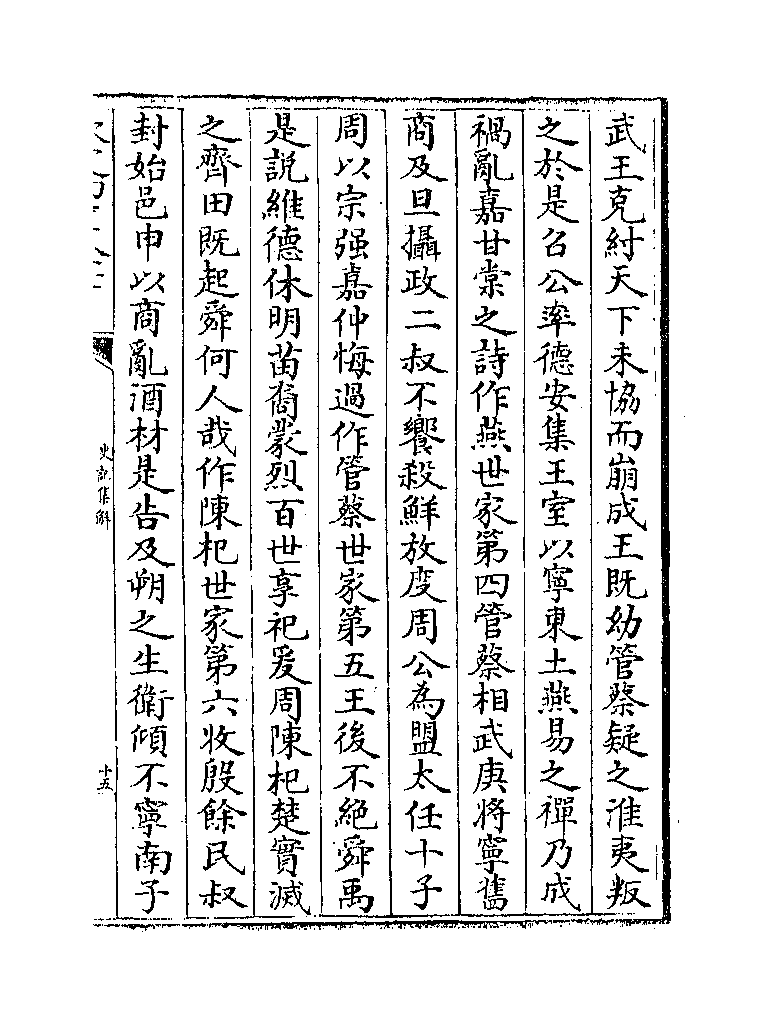 武王克紂天下未協而崩成王既幼管蔡疑之淮夷叛
之於是召公率德安集王室以寧東土燕易之禪乃成
禍亂嘉甘棠之詩作燕世家第四管蔡相武庚將寧舊
商及旦攝政二叔不饗殺鮮放度周公為盟太任十子
周以宗强嘉仲悔過作管蔡世家第五王後不絶舜禹
是説維德休明苗裔蒙烈百世享祀爰周陳杞楚實滅
之齊田既起舜何人哉作陳杞世家第六收殷餘民叔
封始邑申以商亂酒材是告及朔之生衛傾不寧南子
史記集解
十五